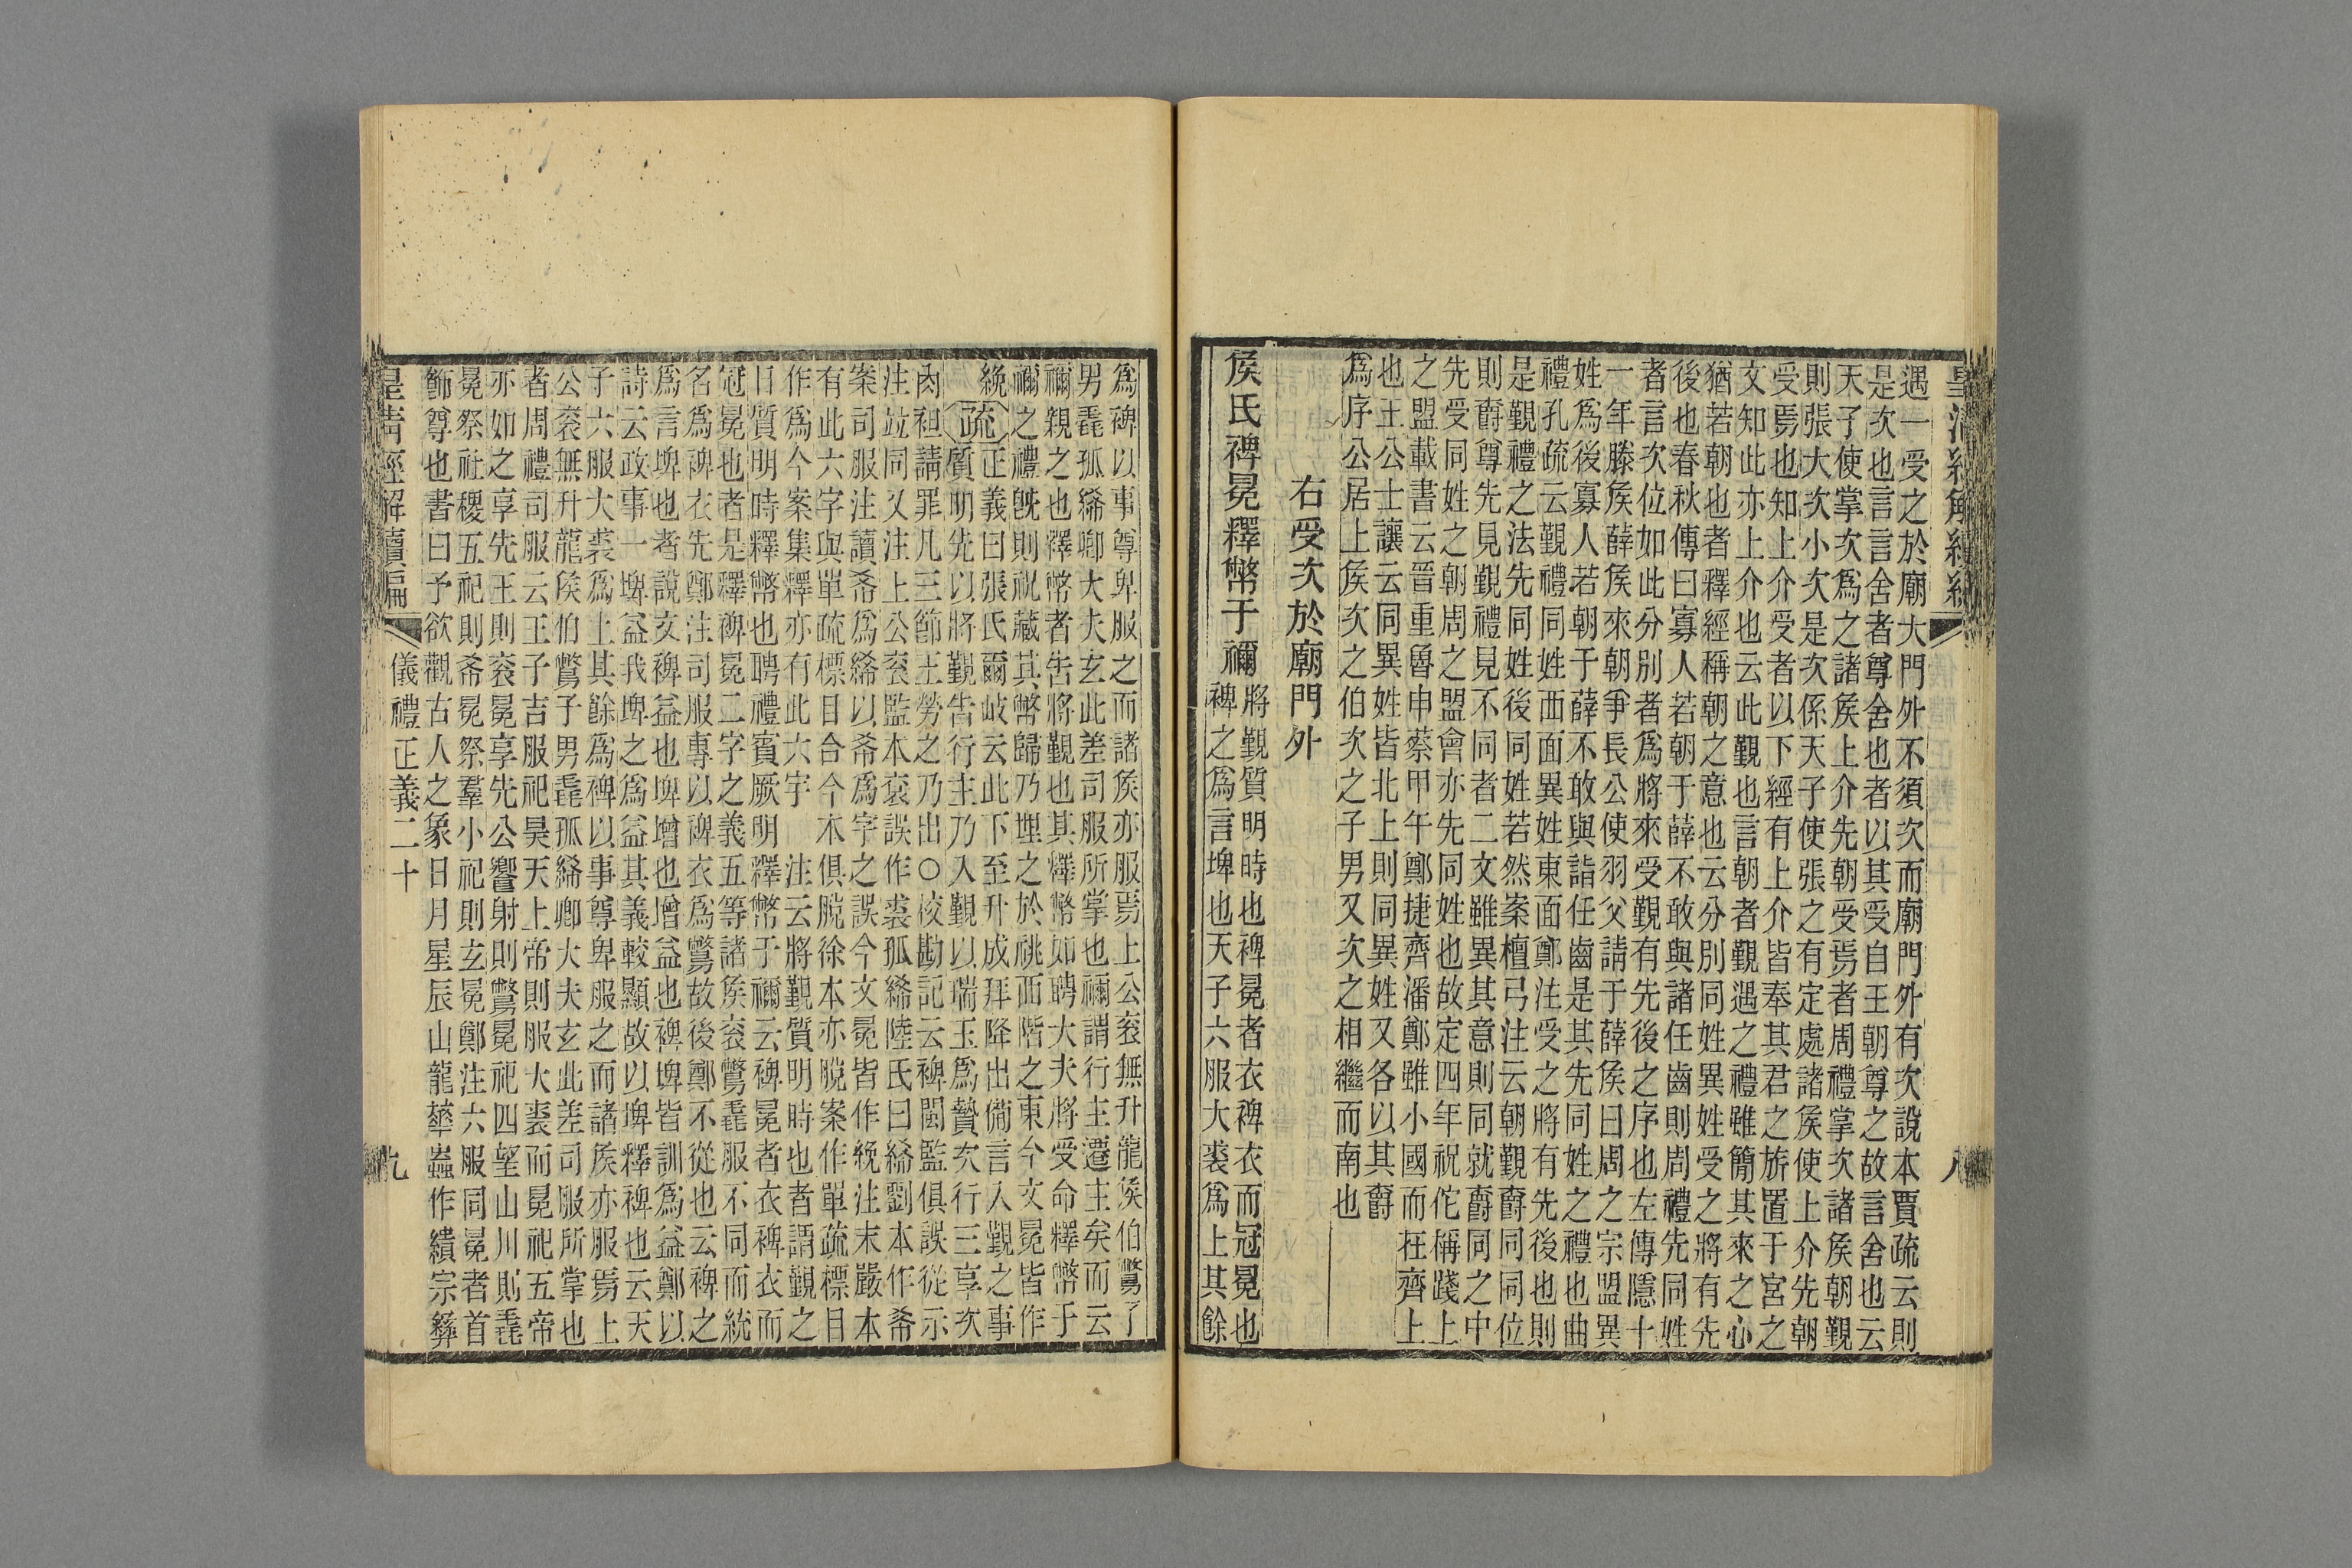 皇清經解續編
八
遇一受之於廟大門外不須次而廟門外有次說本賈疏云則
是次也言言舍者尊舍也者以其受自王朝尊之故言舍也云
天子使掌次爲之諸矦上介先朝受焉者周禮掌次諸矦朝覲
則張大次小次是次係天子使張之有定處諸矦使上介先朝
受焉也知上介受者以下經有上介皆奉其君之旂置于宮之
文知此亦上介也云此覲也言朝者覲遇之禮雖簡其來之心
猶若朝也者釋經稱朝之意也云分別同姓異姓受之將有先
後也春秋傳曰寡人若朝于薛不敢與諸任齒則周禮先同姓
者言次位如此分別者爲將來受覲有先後之序也左傳隱十
一年滕矦薛矦來朝爭長公使羽父請于薛矦曰周之宗盟異
姓爲後寡人若朝于薛不敢與諸任齒是其先同姓之禮也曲
禮孔疏云覲禮同姓西面異姓東面鄭注受之將有先後也則
是覲禮之法先同姓後同姓若然案檀弓注云朝覲爵同同位
則爵尊先見覲禮見不同者二文雖異其意則同就爵同之中
先受同姓之朝周之盟會亦先同姓也故定四年祝佗稱踐上
之盟載書云晉重魯申蔡甲午鄭捷齊潘鄭雖小國而在齊上
也王公士讓云同異姓皆北上則同異姓又各以其爵
爲序公居上矦次之伯次之子男又次之相繼而南也
右受次於廟門外
矦氏裨冕釋幣于禰
將覲質明時也裨冕者衣裨衣而冠冕也
裨之爲言埤也天子六服大裘爲上其餘
爲裨以事尊卑服之而諸矦亦服焉上公衮無升龍矦伯鷩子
男毳孤絺卿大夫玄此差司服所掌也禰謂行主遷主矣而云
禰親之也釋幣者告將覲也其釋幣如聘大夫將受命釋幣于
禰之禮旣則祝藏其幣歸乃埋之於祧西階之東今文冕皆作
絻疏正義曰張氏爾岐云此下至升成拜降出備言入覲之事
質明先以將覲告行主乃入覲以瑞玉爲贄次行三享次
肉袒請罪凡三節王勞之乃出○校勘記云裨閩監俱誤從示
注竝同又注上公衮監本衮誤作裘孤絺陸氏曰絺劉本作希
案司服注讀希爲絺以希爲字之誤今文冕皆作絻注末嚴本
有此六字與單疏標目合今本俱脫徐本亦脫案作單疏標目
作爲今案集釋亦有此六字 注云將覲質明時也者謂覲之
日質明時釋幣也聘禮賓厥明釋幣于禰云裨冕者衣裨衣而
冠冕也者是釋裨冕二字之義五等諸矦衮鷩毳服不同而統
名爲裨衣先鄭注司服專以裨衣爲鷩故後鄭不從也云裨之
爲言埤也者說文裨益也埤增也增益也裨埤皆訓爲益鄭以
詩云政事一埤益我埤之爲益其義較顯故以埤釋裨也云天
子六服大裘爲上其餘爲裨以事尊卑服之而諸矦亦服焉上
公衮無升龍矦伯鷩子男毳孤絺卿大夫玄此差司服所掌也
者周禮司服云王子吉服祀昊天上帝則服大裘而冕祀五帝
亦如之享先王則衮冕享先公饗射則鷩冕祀四望山川則毳
冕祭社稷五祀則希冕祭羣小祀則玄冕鄭注六服同冕者首
飾尊也書曰予欲觀古人之象日月星辰山龍華蟲作繢宗彝
皇清經解續編
儀禮正義二十
九